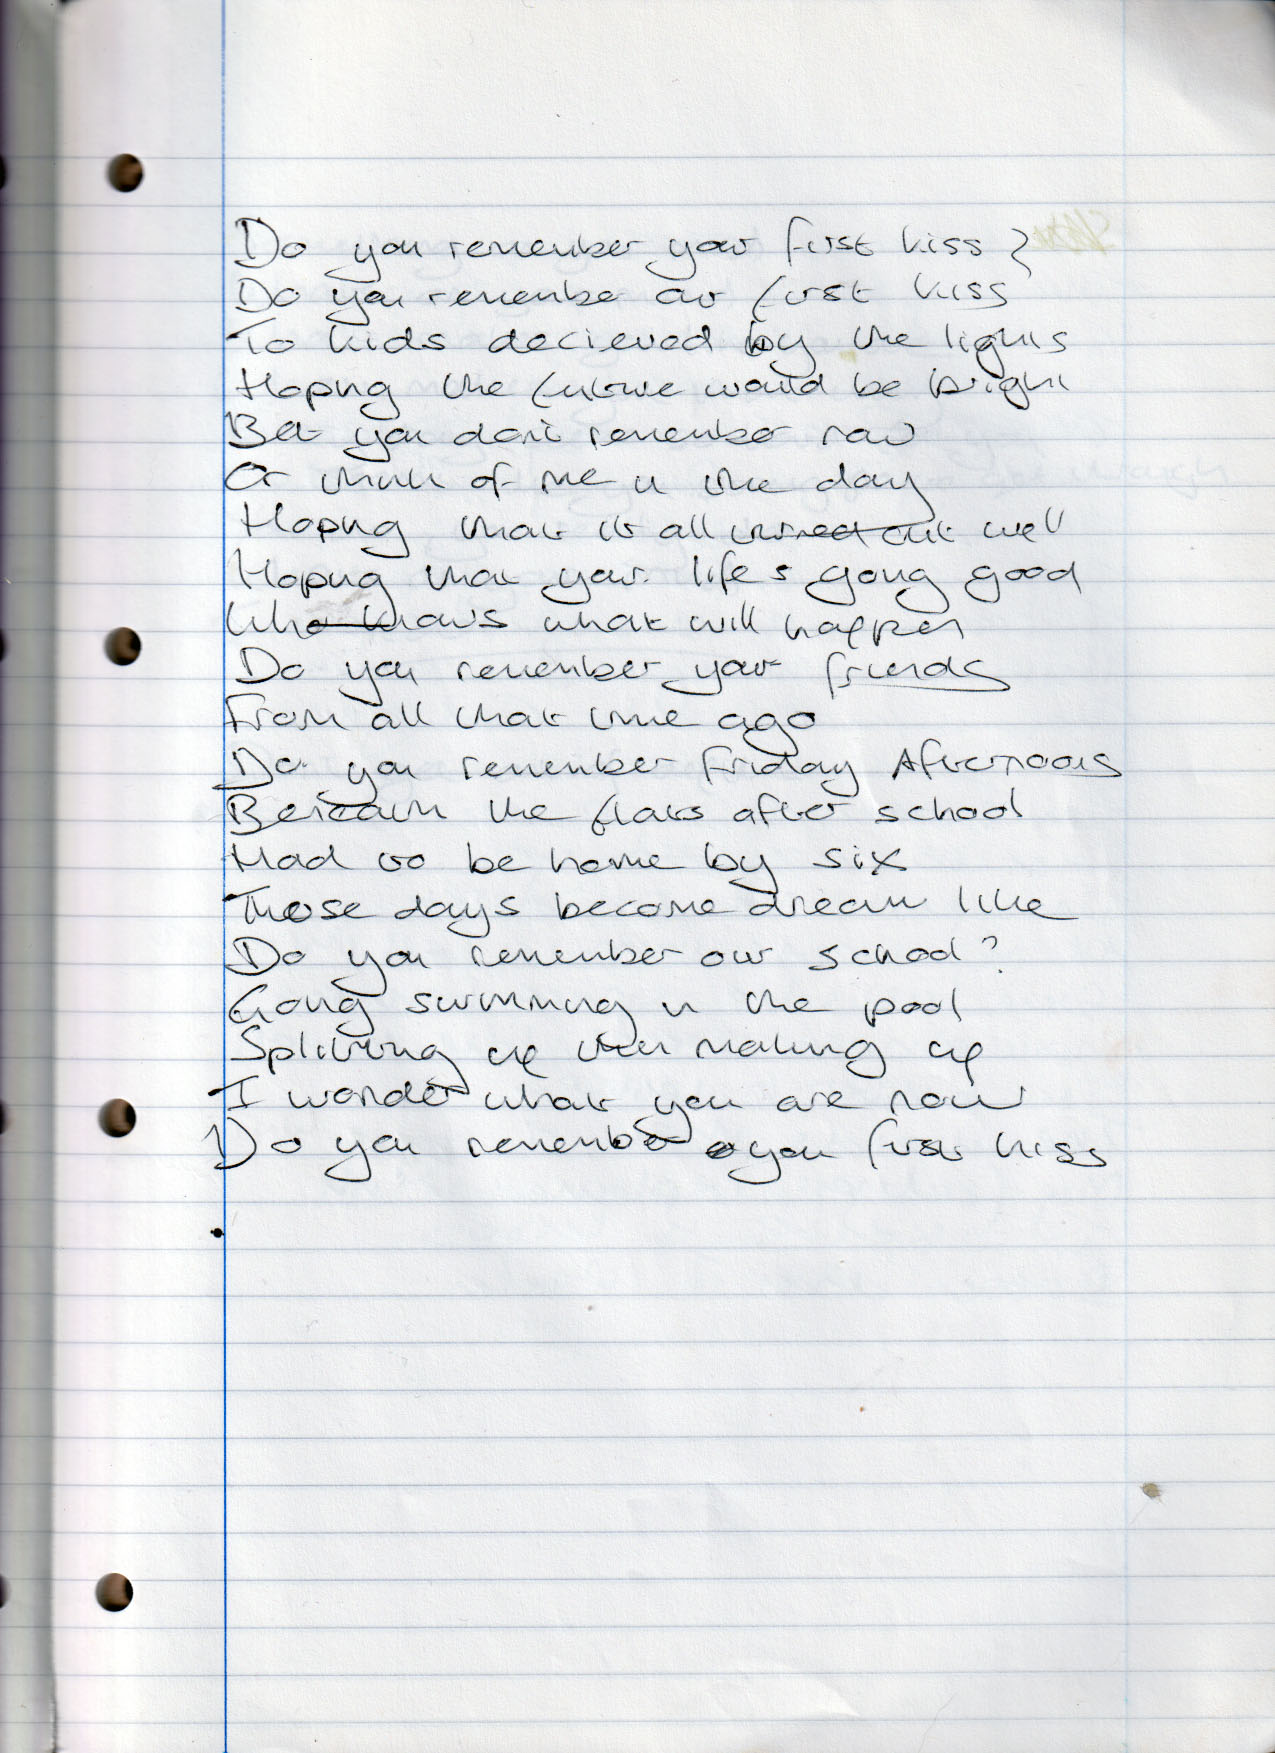 Do you remember your first kiss?
Do you remember our first kiss
To kids decieved by the lights
Hoping the future would be bright
Bet you don't remember now
Or think of me in the day
Hoping that it all turned out well
Hoping that your life's going good
Who knows what will happen
Do you remember your friends
From all that time ago
Do you remember Friday Afternoons
Beneath the flats after school
Had to be home by six
Those days become dream like
Do you remember our school?
Going swimming in the pool
Splitting up then making up
I wonder what you are now
Do you remember you first kiss